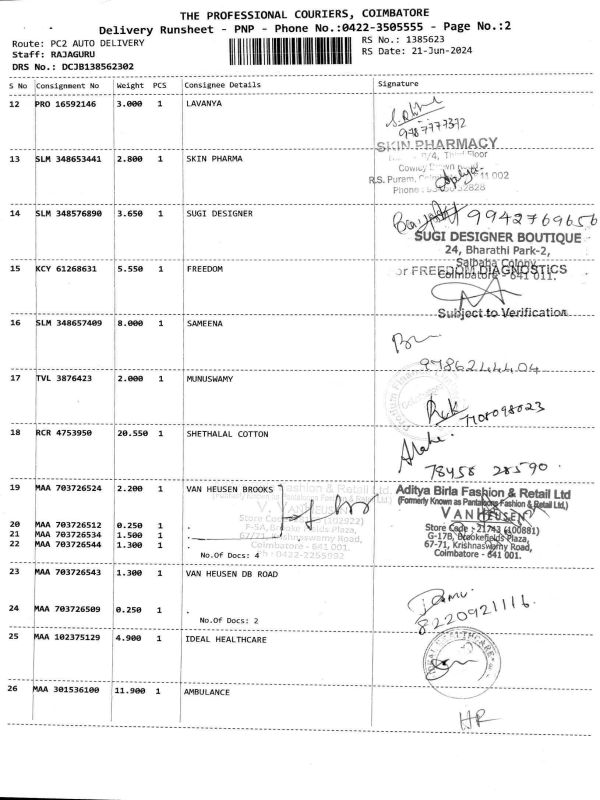 THE PROFESSIONAL COURIERS, COIMBATORE
Delivery Runsheet - PNP - Phone No.:0422-3505555 - Page No.:2
Route: PC2 AUTO DELIVERY
Staff: RAJAGURU
DRS No.: DCJB138562302
RS No.: 1385623
RS Date: 21-Jun-2024
S No Consignment No Weight PCS Consignee Details Signature
12 PRO 16592146 3.000 1 LAVANYA
9787777372
13 SLM 348653441 2.800 1 SKIN PHARMA
SKIN PHARMACY
Third Floor
R.S. Puram, 11 002
Phone : 32828
14 SLM 348576890 3.650 1 SUGI DESIGNER
9942769656
SUGI DESIGNER BOUTIQUE
24, Bharathi Park-2,
Saibaba Colony
Coimbatore - 641 011.
15 KCY 61268631 5.550 1 FREEDOM
or FREEDOM DIAGNOSTICS
Subject to Verification
16 SLM 348657409 8.000 1 SAMEENA
9786244404
17 TVL 3876423 2.000 1 MUNUSWAMY
7708098023
18 RCR 4753950 20.550 1 SHETHALAL COTTON
78458 28590
19 MAA 703726524 2.200 1 VAN HEUSEN BROOKS
20 MAA 703726512 0.250 1 .
21 MAA 703726534 1.500 1 .
22 MAA 703726544 1.300 1 .
No.Of Docs: 4
Fashion & Retail Ltd.
Store Code (102922)
F-5A, Brooke Fields Plaza,
67/71, Krishnaswamy Road,
Coimbatore - 641 001.
Ph : 0422-2255992
Aditya Birla Fashion & Retail Ltd
(Formerly Known as Pantaloons Fashion & Retail Ltd.)
VAN HEUSEN
Store Code : 21743 (100881)
G-17B, Brookefields Plaza,
67-71, Krishnaswamy Road,
Coimbatore - 641 001.
23 MAA 703726543 1.300 1 VAN HEUSEN DB ROAD
24 MAA 703726509 0.250 1 .
No.Of Docs: 2
8220921116.
25 MAA 102375129 4.900 1 IDEAL HEALTHCARE
26 MAA 301536100 11.900 1 AMBULANCE
HR